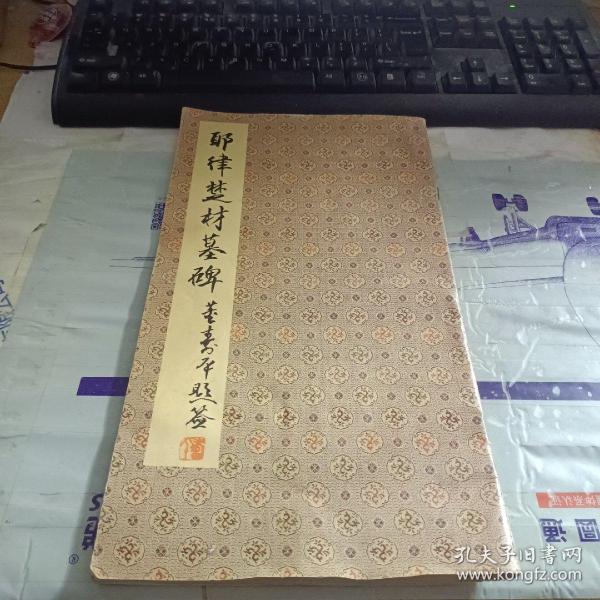 耶律楚材墓碑
董寿平题签
体系认证
圆通
孔夫子旧书网
www.kongfz.com